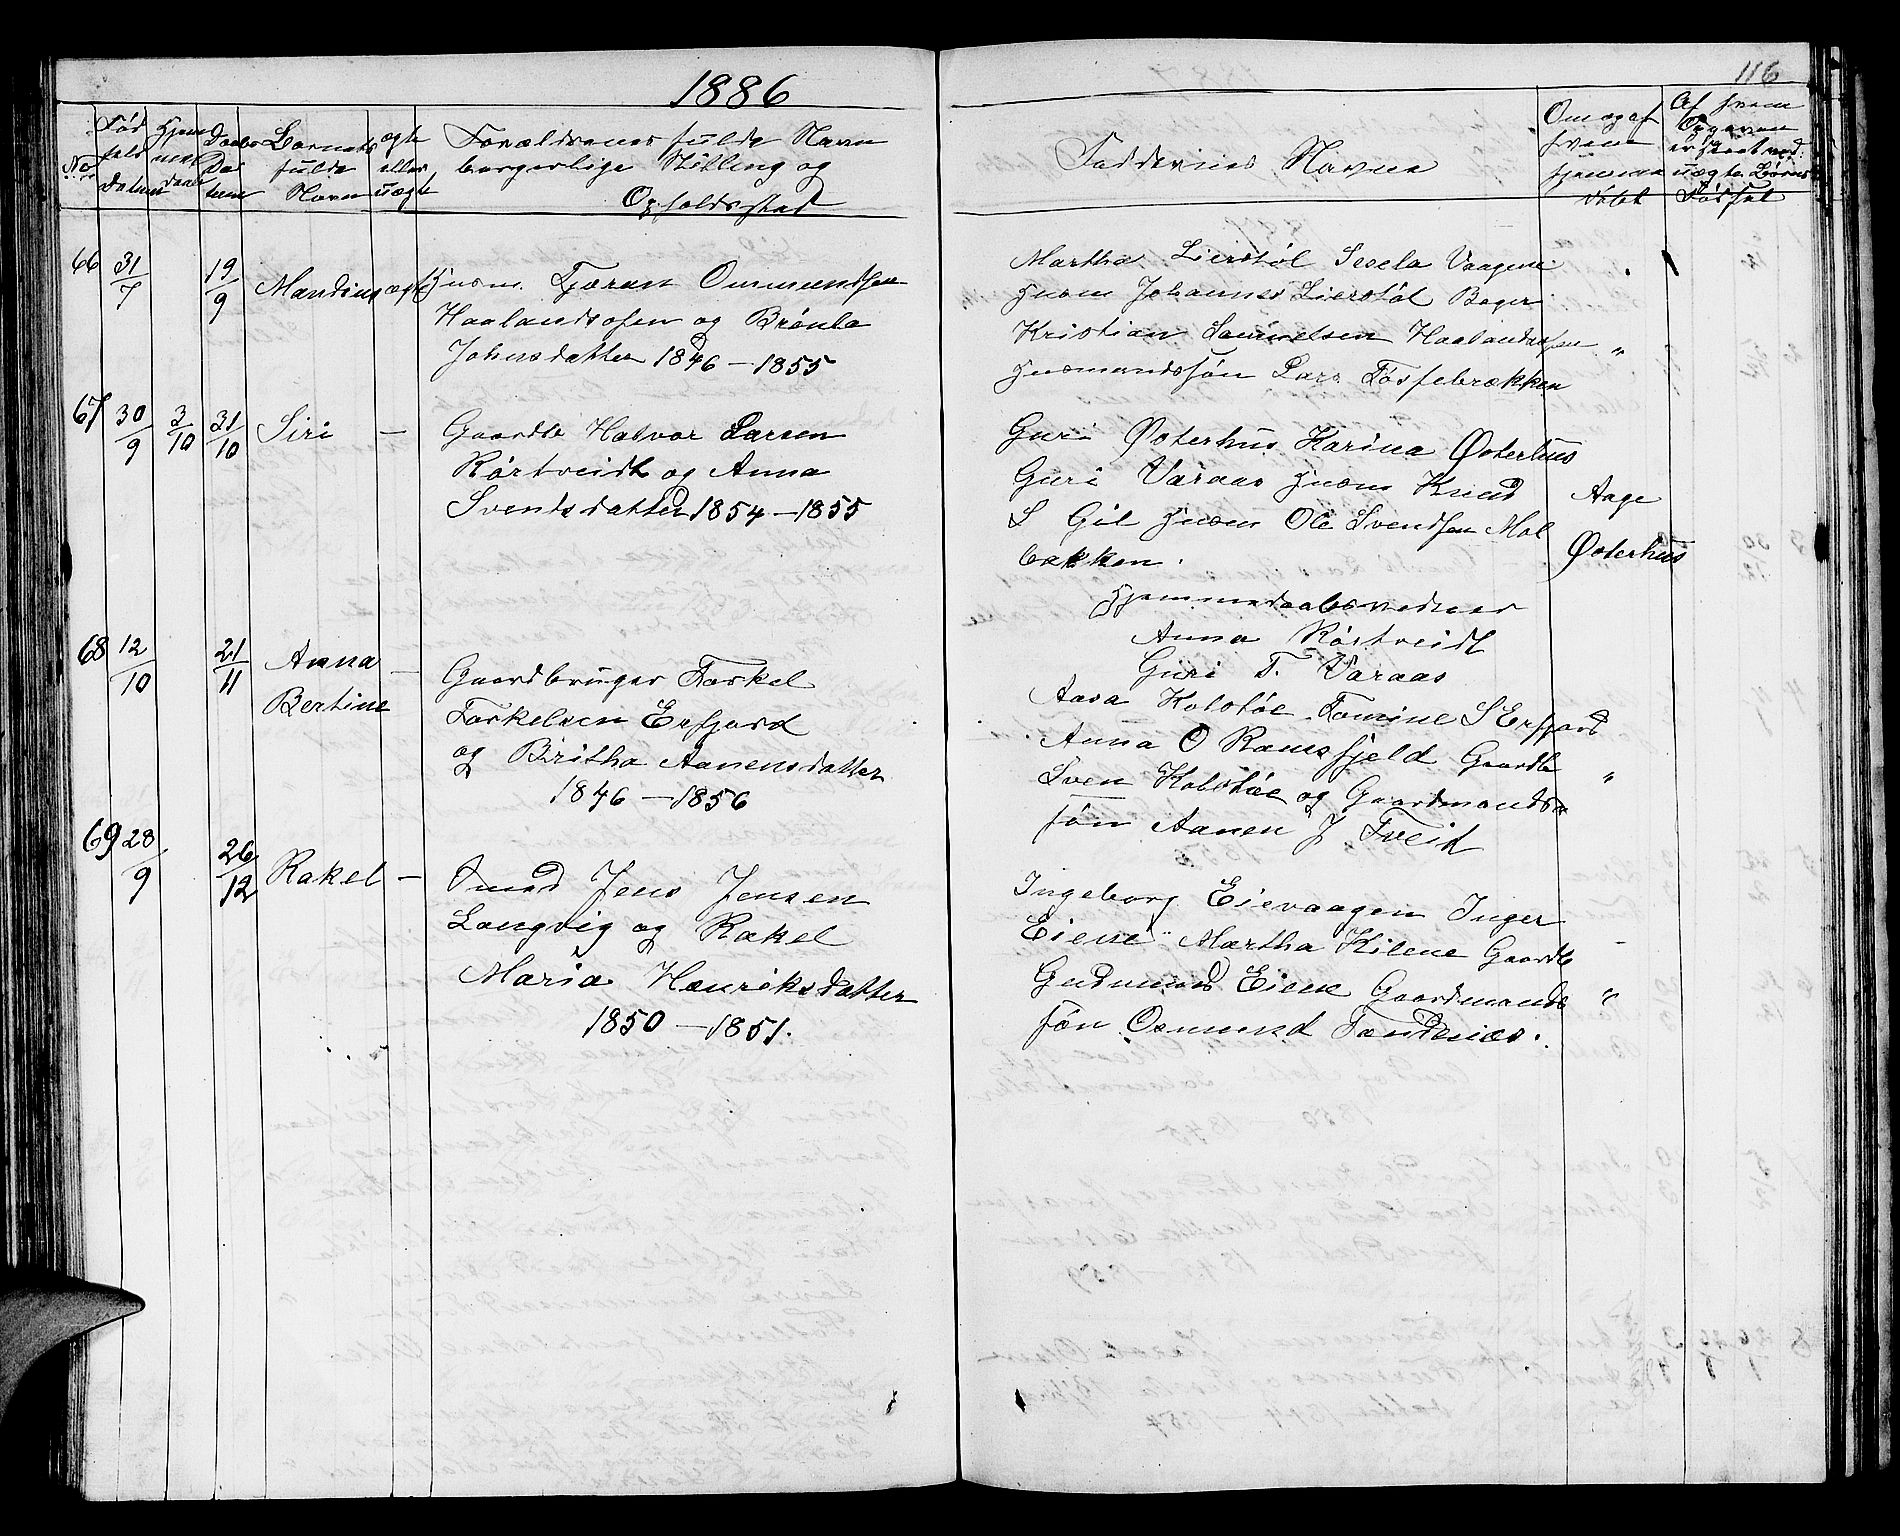 1886
116
No
Fød
sels
Datum
Hjem
me
daab
Daabs
Da
tum
Barnets
fulde
Navn
ægte
eller
uægte
Forældrenes fulde Navn
borgerlige Stilling og
Opholdssted
Faddernes Navne
Om og af
hvem
hjemme
døbt
Af hvem
Opgaven
uægte Børns
Fødsel
66 31/7 19/9 Mandius ægte
Husm. Gøran Ommundsen
Haalandsosen og Brønla
Johnsdatter 1846 – 1855
Martha Lierstøl Sesela Vaagene
Husm Johannes Lierstøl Bager
Kristian Samuelsen Haalandsosen "
Husmandssøn Lars Fossebrækken
67 30/9 3/10 31/10 Siri —
Gaardb Halvor Larsen
Rørtveidt og Anna
Sventsdatter 1854 – 1855
Guri Østerhus Karina Østerhus
Guri Varaas Husm Knud
S Gil Husm Ole Svendsen Mol
bækken.
Aage
Østerhus
Hjemmedaabsvidner
Anna Rørtveidt
Guri T. Varaas
68 12/10 21/11 Anna —
Bertine
Gaardbruger Torkel
Torkelsen Erfjord
og Britha Aanensdatter
1846 – 1856
Aasa Kolstøe Tomine S Erfjord
Anna O Ramsfjeld Gaardb
Sven Kolstøe og Gaardmands "
søn Aanen J Tveid
69 28/9 26/12 Rakel —
Smed Jens Jensen
Langvig og Rakel
Maria Henriksdatter
1850 – 1851.
Ingeborg Eievaagen Inger
Eiene Martha Kilene Gaardb
Gudmund Eiene Gaardmands "
søn Osmund Tandenæs.